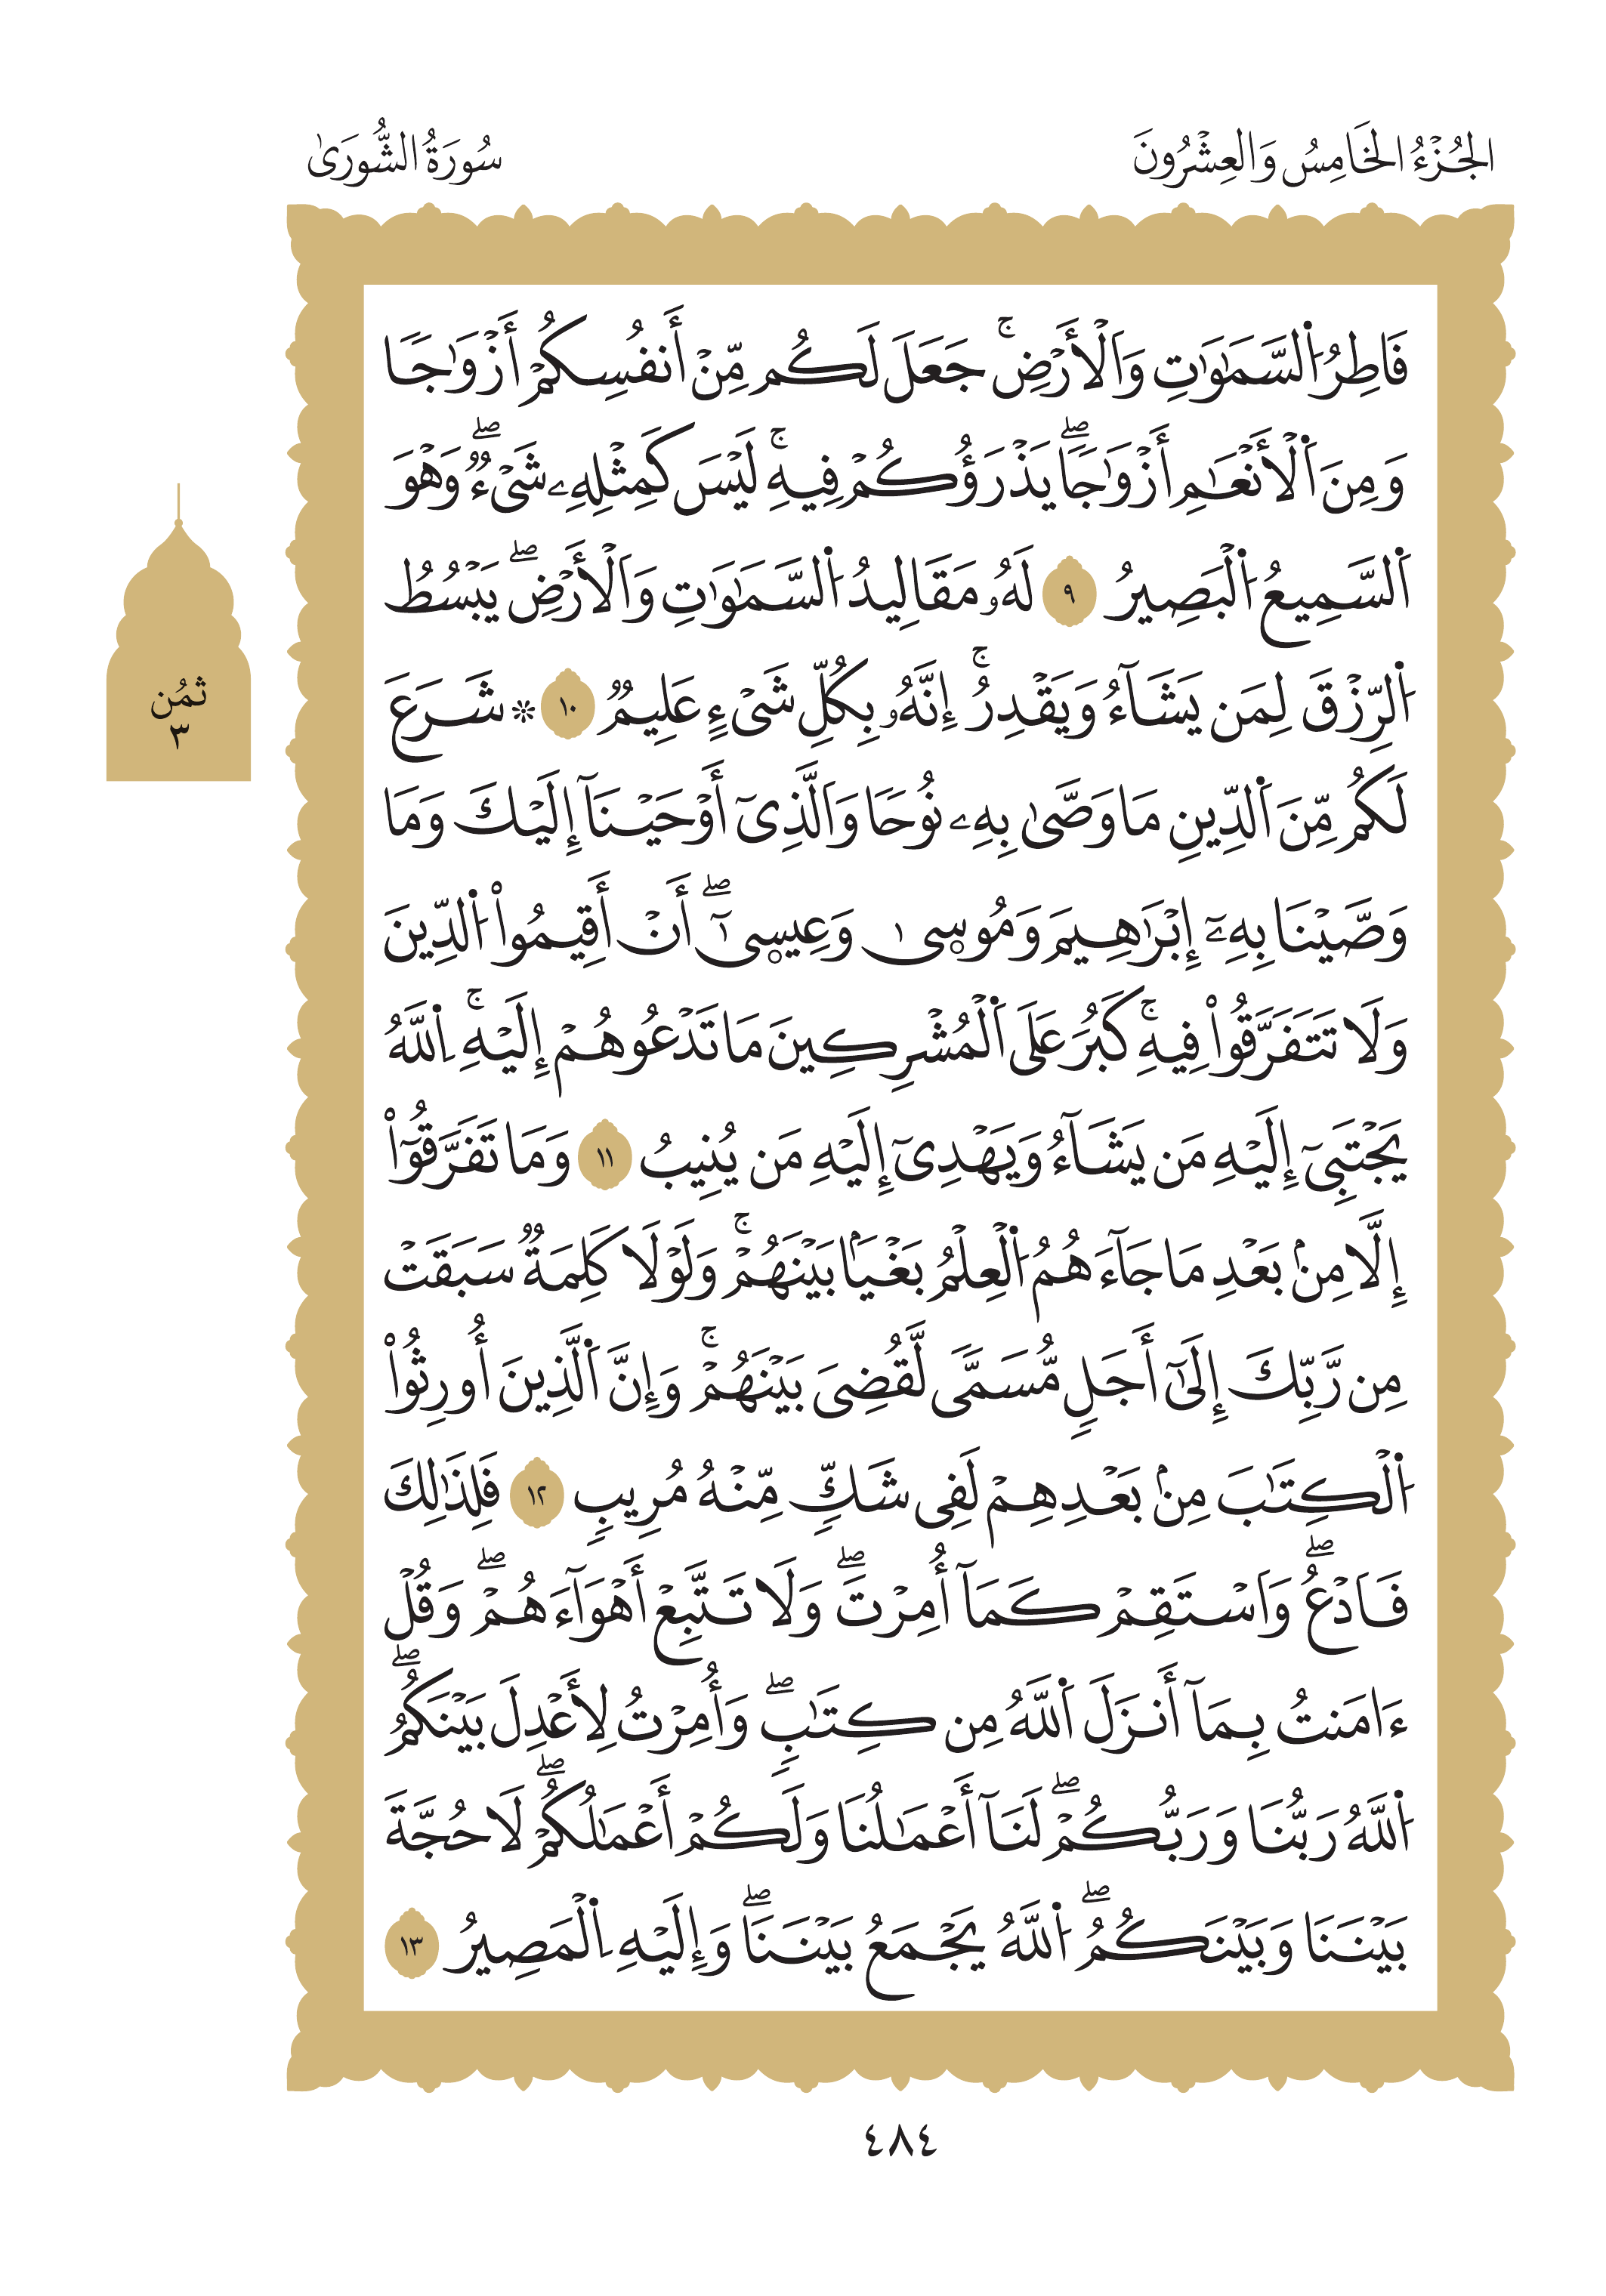 الجُزْءُ الخَامِسُ وَالعِشْرُونَ
سُورَةُ الشُّورَىٰ
فَاطِرُ اُ۬لسَّمَٰوَٰتِ وَالَارْضِۚ جَعَلَ لَكُم مِّنْ أَنفُسِكُمْ أَزْوَٰجٗا
وَمِنَ اَ۬لْأَنْعَٰمِ أَزْوَٰجٗاۖ يَذْرَؤُكُمْ فِيهِۚ لَيْسَ كَمِثْلِهِۦ شَيْءٞۖ وَهْوَ
اَ۬لسَّمِيعُ اُ۬لْبَصِيرُ ٩ لَهُۥ مَقَالِيدُ اُ۬لسَّمَٰوَٰتِ وَالْأَرْضِۖ يَبْسُطُ
اُ۬لرِّزْقَ لِمَن يَشَآءُ وَيَقْدِرُۚ إِنَّهُۥ بِكُلِّ شَيْءٍ عَلِيمٞ ١٠ ۞ شَرَعَ
لَكُم مِّنَ اَ۬لدِّينِ مَا وَصَّىٰ بِهِۦ نُوحٗا وَالَّذِيٓ أَوْحَيْنَآ إِلَيْكَ وَمَا
وَصَّيْنَا بِهِۦٓ إِبْرَٰهِيمَ وَمُوسۭىٰ وَعِيسۭىٰٓۖ أَنْ أَقِيمُواْ اُ۬لدِّينَ
وَلَا تَتَفَرَّقُواْ فِيهِۚ كَبُرَ عَلَى اَ۬لْمُشْرِكِينَ مَا تَدْعُوهُمْ إِلَيْهِۚ اِ۬للَّهُ
يَجْتَبِيٓ إِلَيْهِ مَن يَشَآءُ وَيَهْدِيٓ إِلَيْهِ مَن يُنِيبُ ١١ وَمَا تَفَرَّقُوٓاْ
إِلَّا مِنۢ بَعْدِ مَا جَآءَهُمُ اُ۬لْعِلْمُ بَغْيَۢا بَيْنَهُمْۚ وَلَوْلَا كَلِمَةٞ سَبَقَتْ
مِن رَّبِّكَ إِلَىٰٓ أَجَلٖ مُّسَمّٗى لَّقُضِيَ بَيْنَهُمْۚ وَإِنَّ اَ۬لَّذِينَ أُورِثُواْ
اُ۬لْكِتَٰبَ مِنۢ بَعْدِهِمْ لَفِي شَكّٖ مِّنْهُ مُرِيبٖ ١٢ فَلِذَٰلِكَ
فَادْعُۖ وَاسْتَقِمْ كَمَآ أُمِرْتَۖ وَلَا تَتَّبِعْ أَهْوَآءَهُمْۖ وَقُلْ
ءَامَنتُ بِمَآ أَنزَلَ اَ۬للَّهُ مِن كِتَٰبٖۖ وَأُمِرْتُ لِأَعْدِلَ بَيْنَكُمُۖ
اُ۬للَّهُ رَبُّنَا وَرَبُّكُمْۖ لَنَآ أَعْمَٰلُنَا وَلَكُمْ أَعْمَٰلُكُمْۖ لَا حُجَّةَ
بَيْنَنَا وَبَيْنَكُمُۖ اُ۬للَّهُ يَجْمَعُ بَيْنَنَاۖ وَإِلَيْهِ اِ۬لْمَصِيرُ ١٣
ثُمُن
٣
٤٨٤